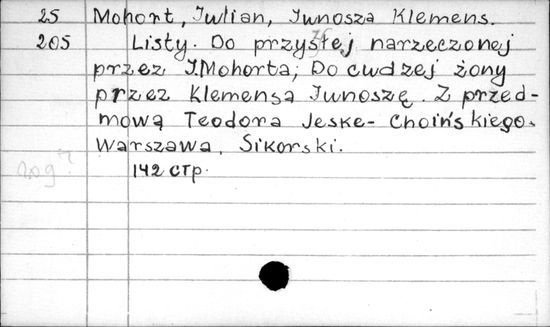 25 Mohort, Julian, Junosza Klemens.
205 Listy. Do przyszłej narzeczonej
przez J.Mohorta; Do cudzej żony
przez Klemensa Junoszę. Z przed-
mową Teodora Jeske-Choińskiego.
Warszawa, Sikorski.
142 стр.